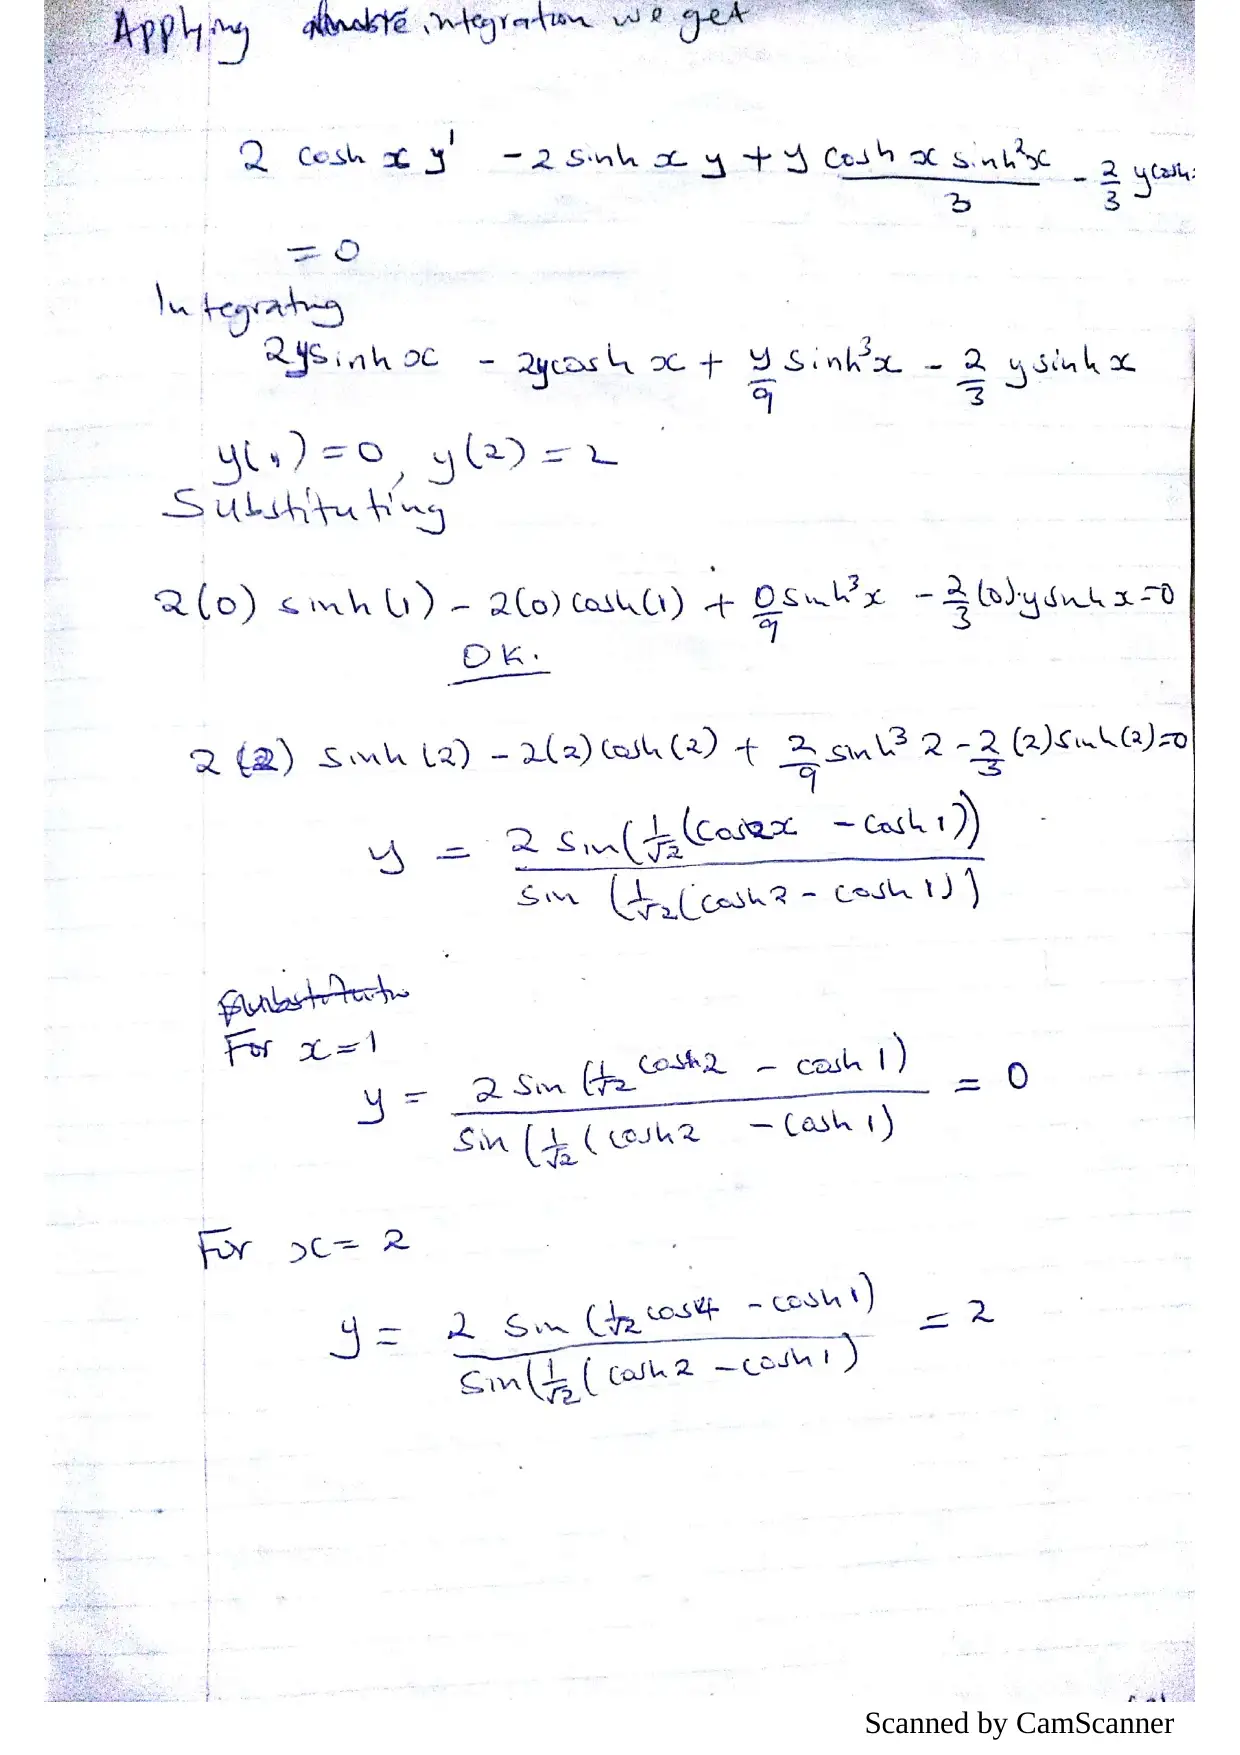 Applying double integration we get
2 cosh x y' - 2 sinh x y + y cosh x sinh²x / 3 - 2/3 y cosh
= 0
Integrating
2y sinh x - 2y cosh x + y/9 sinh³x - 2/3 y sinh x
y(1) = 0, y(2) = 2
Substituting
2(0) sinh(1) - 2(0) cosh(1) + 0/9 sinh³x - 2/3 (0).y sinh x = 0
OK.
2(2) sinh(2) - 2(2) cosh(2) + 2/9 sinh³ 2 - 2/3 (2) sinh(2) = 0
y = 2 sin(1/√2 (cos2x - cosh 1)) / sin(1/√2 (cosh 2 - cosh 1))
For x = 1
y = 2 sin (1/√2 cosh 2 - cosh 1) / sin (1/√2 (cosh 2 - cosh 1) = 0
For x = 2
y = 2 sin (1/√2 cos4 - cosh 1) / sin(1/√2 (cosh 2 - cosh 1) = 2
Scanned by CamScanner